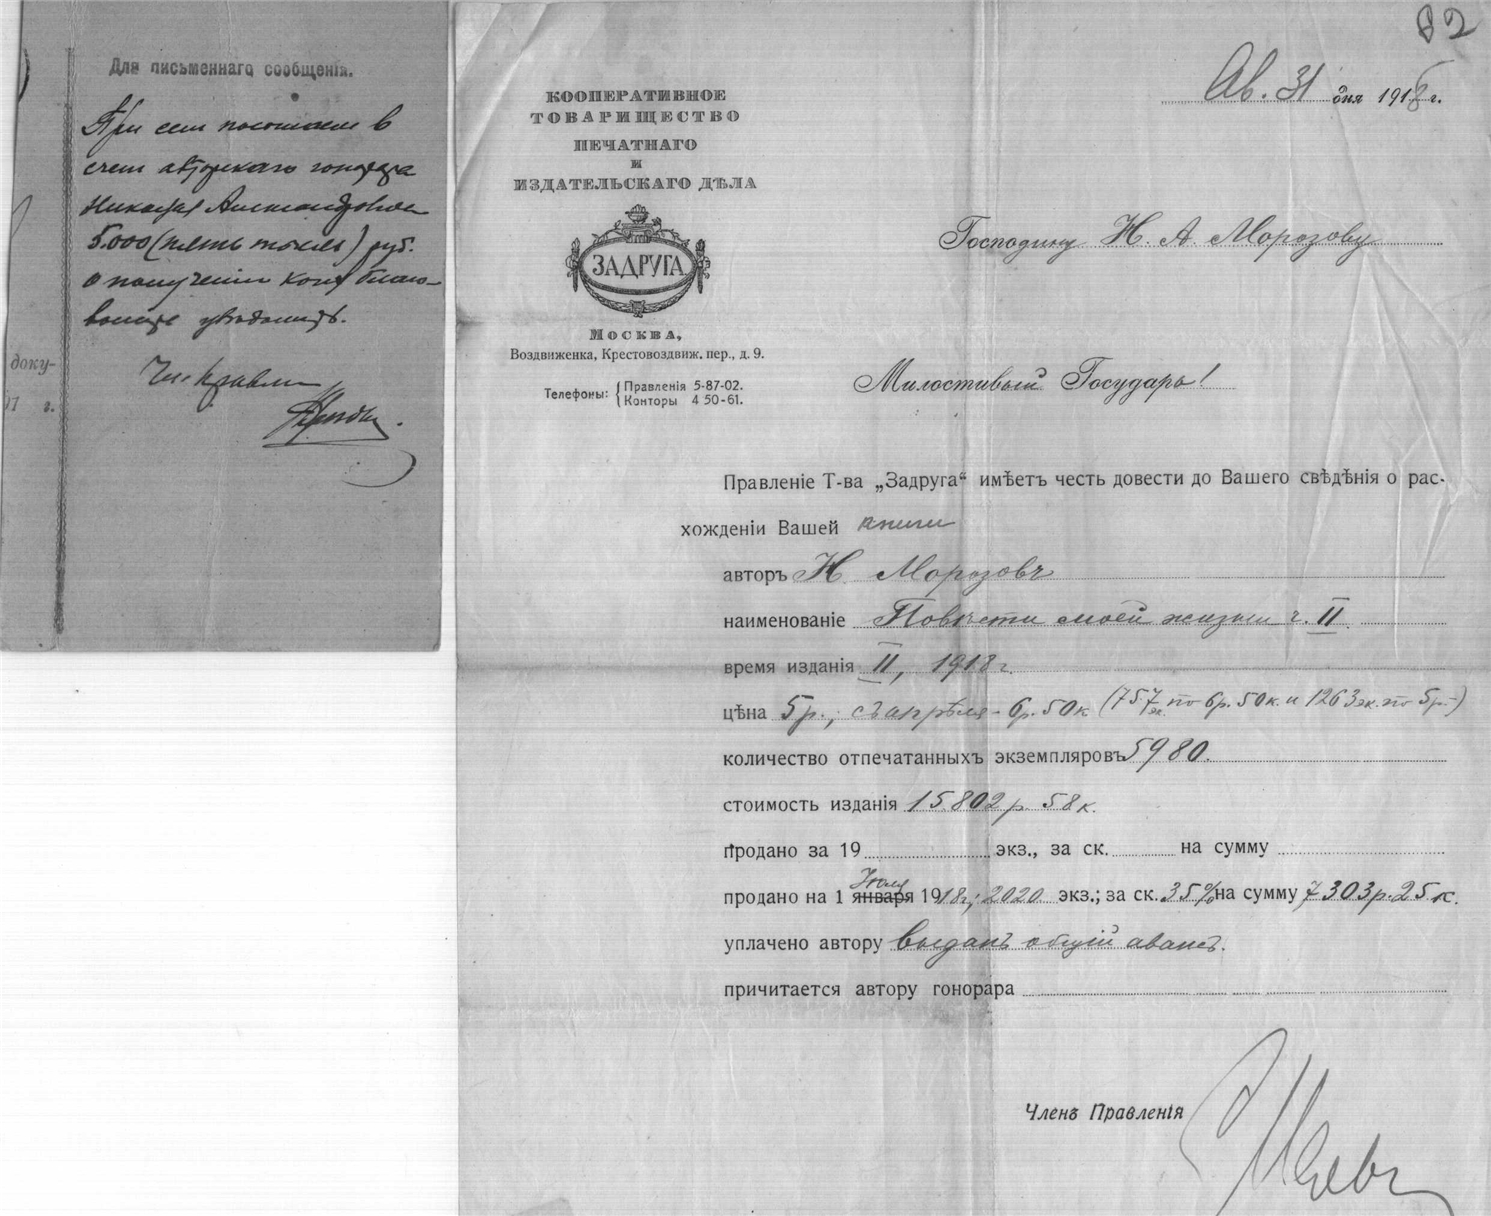 Для письменнаго сообщенія.
При сем посылаем в
счет авторскаго гонорара
Николая Александровича
5.000 (пять тысяч) руб.
о получении коих благо-
волите уведомить.
Чл. Правлен
доку-
г.
82
Ав. 31 дня 1918 г.
КООПЕРАТИВНОЕ
ТОВАРИЩЕСТВО
ПЕЧАТНАГО
И
ИЗДАТЕЛЬСКАГО ДѢЛА
ЗАДРУГА
МОСКВА,
Воздвиженка, Крестовоздвиж. пер., д. 9.
Телефоны: { Правленія 5-87-02.
Конторы 4 50-61.
Господину Н. А. Морозову
Милостивый Государь!
Правленіе Т-ва „Задруга“ имѣетъ честь довести до Вашего свѣдѣнія о рас-
хожденіи Вашей книги
авторъ Н. Морозовъ
наименованіе Повѣсти моей жизни ч. II
время изданія II, 1918 г.
цѣна 5 р., съ апрѣля - 6 р. 50 к (757 эк. по 6 р. 50 к. и 1263 эк. по 5 р.-)
количество отпечатанныхъ экземпляровъ 5980.
стоимость изданія 15802 р. 58 к.
продано за 19 экз., за ск. на сумму
Июля
продано на 1 января 1918 г.; 2020 экз.; за ск. 35% на сумму 7303 р. 25 к.
уплачено автору выданъ общій авансъ.
причитается автору гонорара
Членъ Правленія